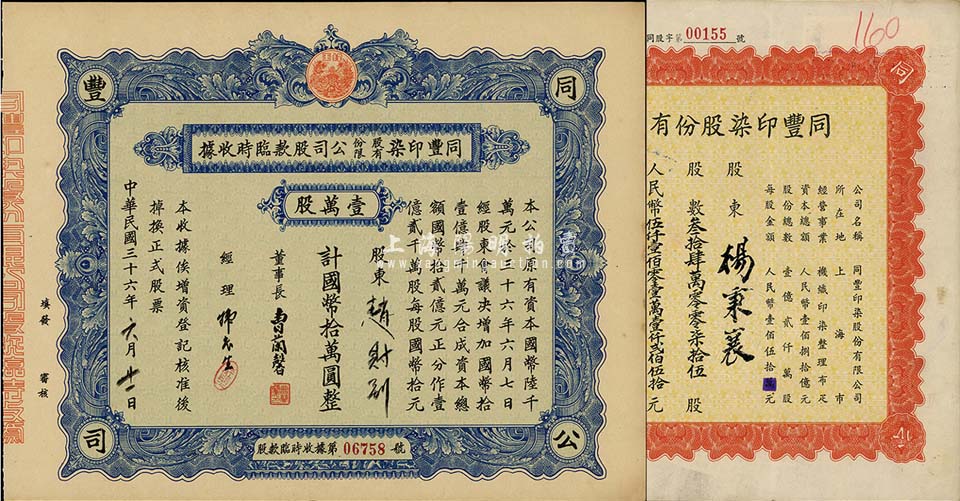 豐
同
司
公
同豐印染股份有限公司股款臨時收據
壹萬股
本公司原有資本國幣陸千
萬元於三十六年六月七日
經股東會議決增加國幣拾
壹億肆千萬元合成資本總
額國幣拾貳億元正分作壹
億貳千萬股每股國幣拾元
股東
計國幣拾萬圓整
董事長
經理
本收據俟增資登記核准後
掉換正式股票
中華民國三十六年六月廿一日
填發
審核
股款臨時收據第 06758 號
同股字第 00155 號
1160
同
同豐印染股份有
公司名稱 同豐印染股份有限公司
所在地 上海市
經營事業 機織印染整理布疋
資本總額 人民幣壹佰捌拾億元
股份總數 壹億貳仟萬股
每股金額 人民幣壹佰伍拾元
股東 楊秉襄
股數叁拾肆萬零零柒拾伍股
人民幣伍仟壹佰零壹萬壹仟貳佰伍拾元
上海陽明拍賣